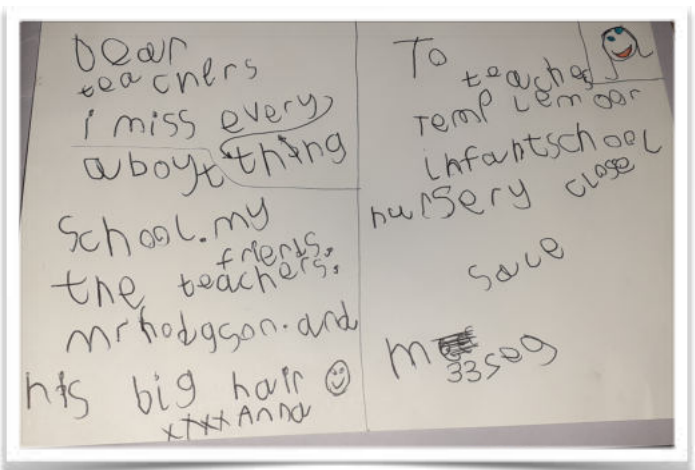 Dear
teachers
i miss every
thing
aboyt
School. my
friends.
the teachers.
mr hodgson. and
his big hair
xxxx Anna
To
teachers
Temp Lemoor
infantschool
nursery close
Sale
m
33 seg